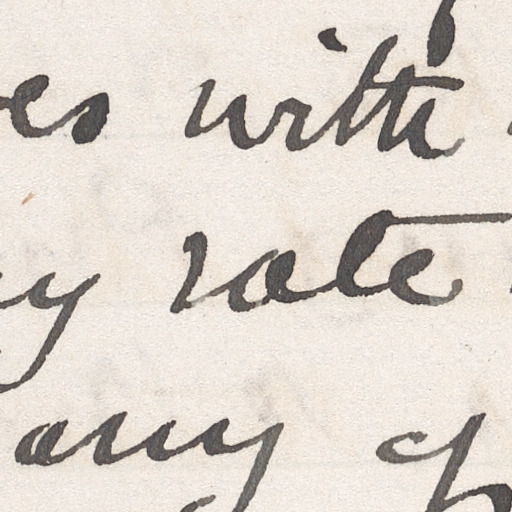 es with
y rate
any